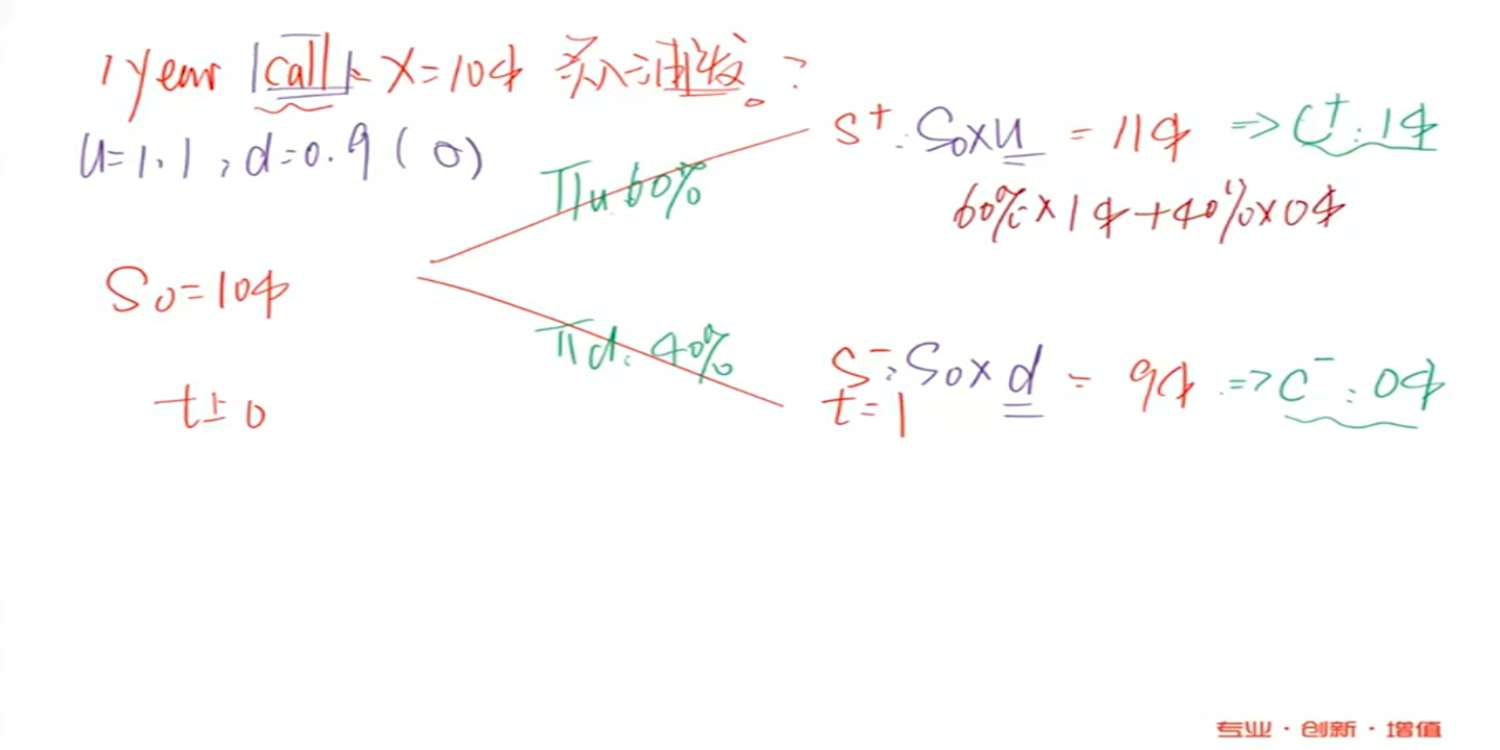 1 year call X=10$ 买入沽发。?
u=1.1, d=0.9 (σ)
S⁺: S₀×u = 11$ => C⁺: 1$
πu 60%
60%×1$+40%×0$
S₀=10$
πd: 40%
S⁻: S₀×d = 9$ => C⁻: 0$
t=0
t=1
专业·创新·增值